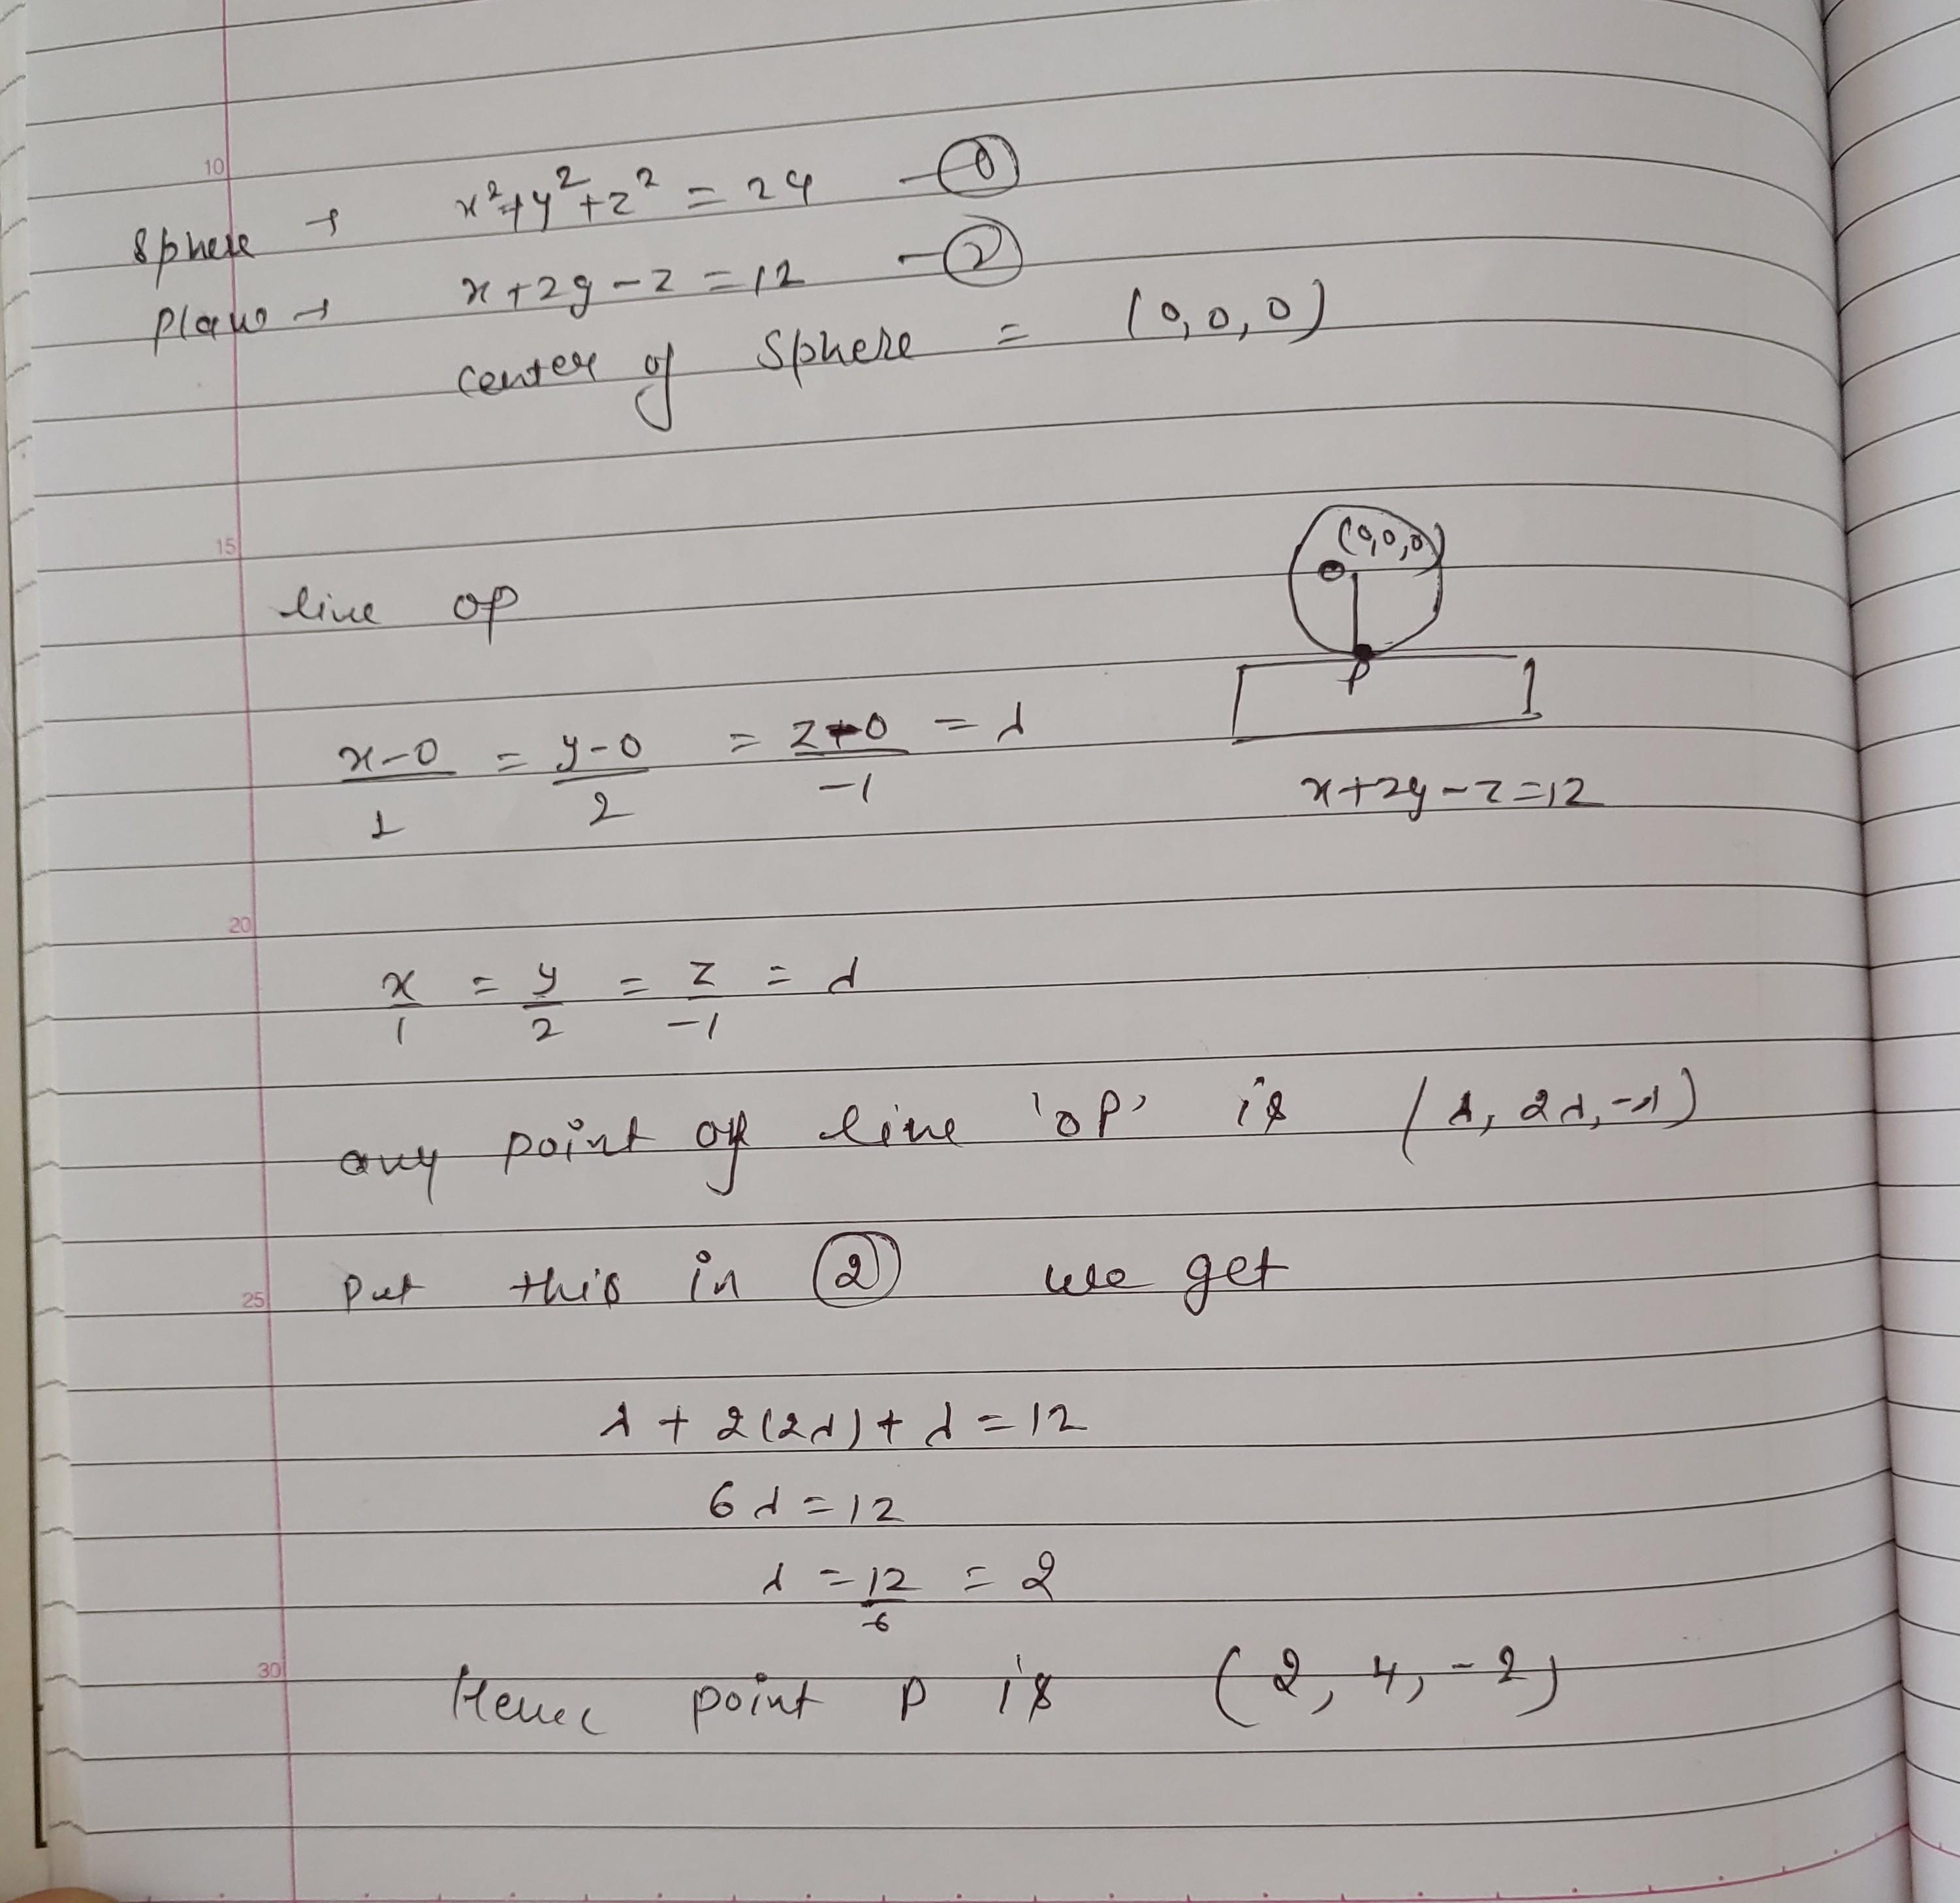 10
sphere → x²+y²+z² = 24 —①
plane → x+2y-z=12 —②
center of sphere = (0,0,0)
15
(0,0,0)
O
line OP
P
x-0/1 = y-0/2 = z-0/-1 = λ
x+2y-z=12
20
x/1 = y/2 = z/-1 = λ
any point of line 'OP' is (λ, 2λ, -λ)
25
put this in ② we get
λ + 2(2λ) + λ = 12
6λ = 12
λ = 12/6 = 2
30
Hence point P is (2, 4, -2)